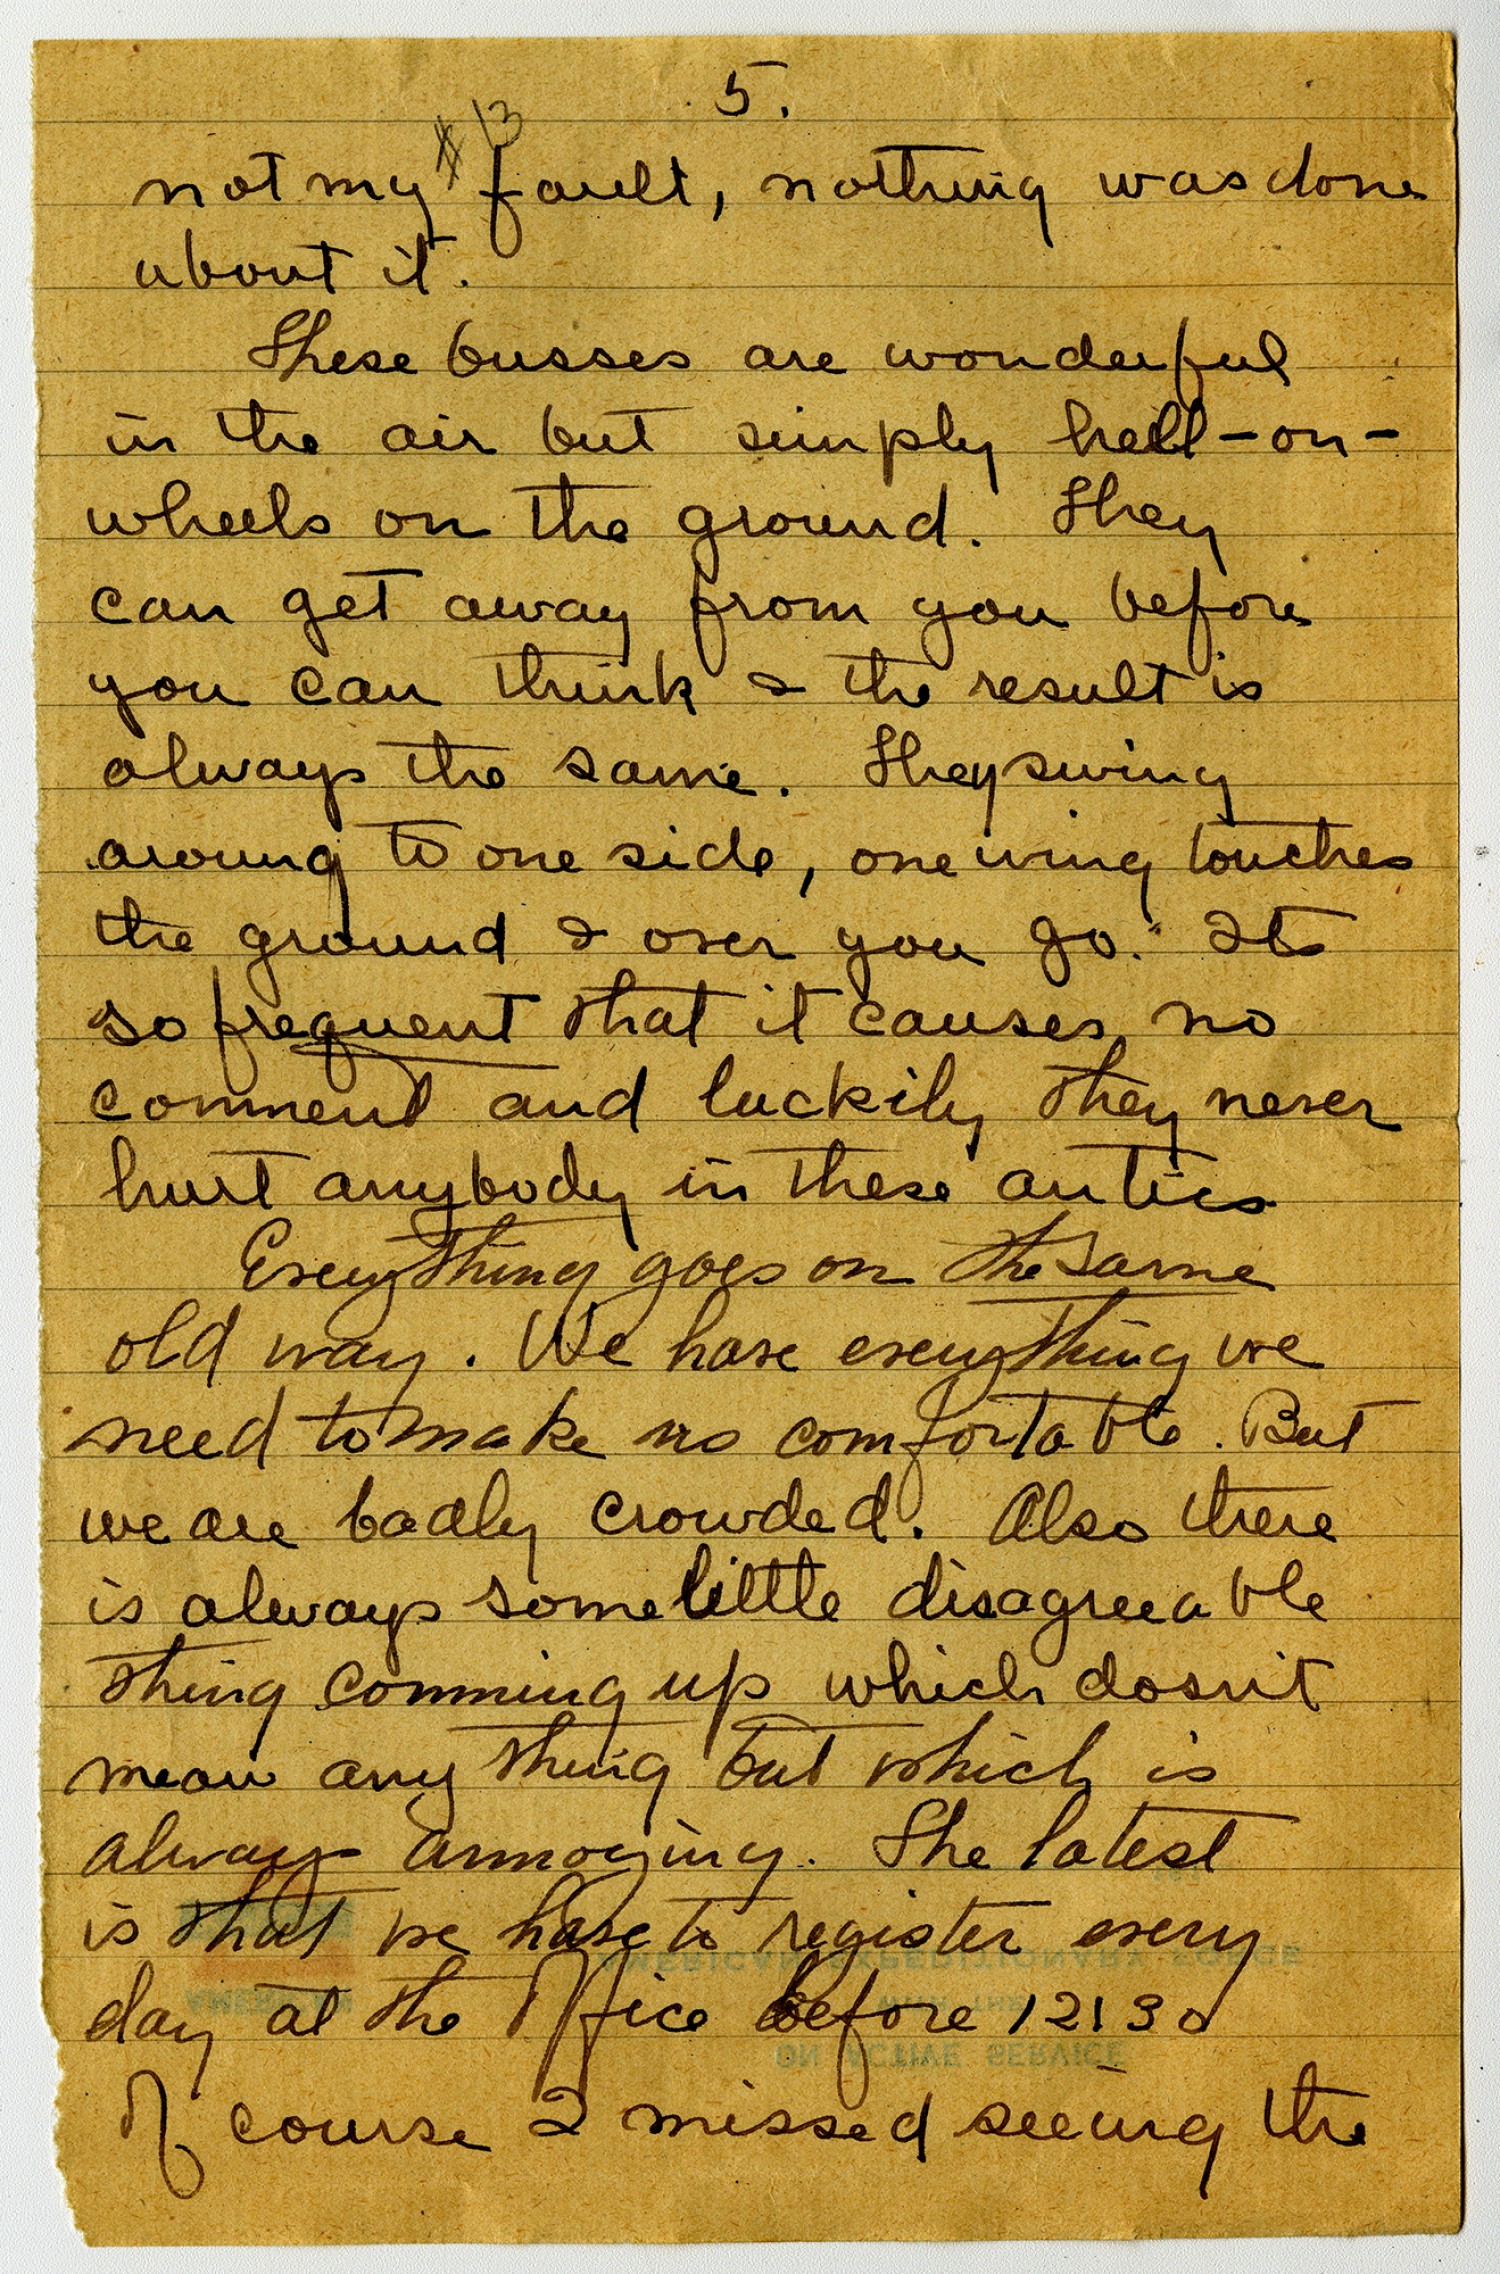 5.
#13
not my fault, nothing was done
about it.
These busses are wonderful
in the air but simply hell-on-
wheels on the ground. They
can get away from you before
you can think & the result is
always the same. They swing
aroung to one side, one wing touches
the ground & over you go. Its
so frequent that it causes no
comment and luckily they never
hurt anybody in these antics
Everything goes on the same
old way. We have everything we
need to make us comfortable. But
we are badly crowded. Also there
is always some little disagreeable
thing comming up which dosn't
mean any thing but which is
always annoying. The latest
is that we have to register every
day at the office before 12130
Of course I missed seeing the
AMERICAN EXPEDITIONARY FORCE
WITH THE
ON ACTIVE SERVICE